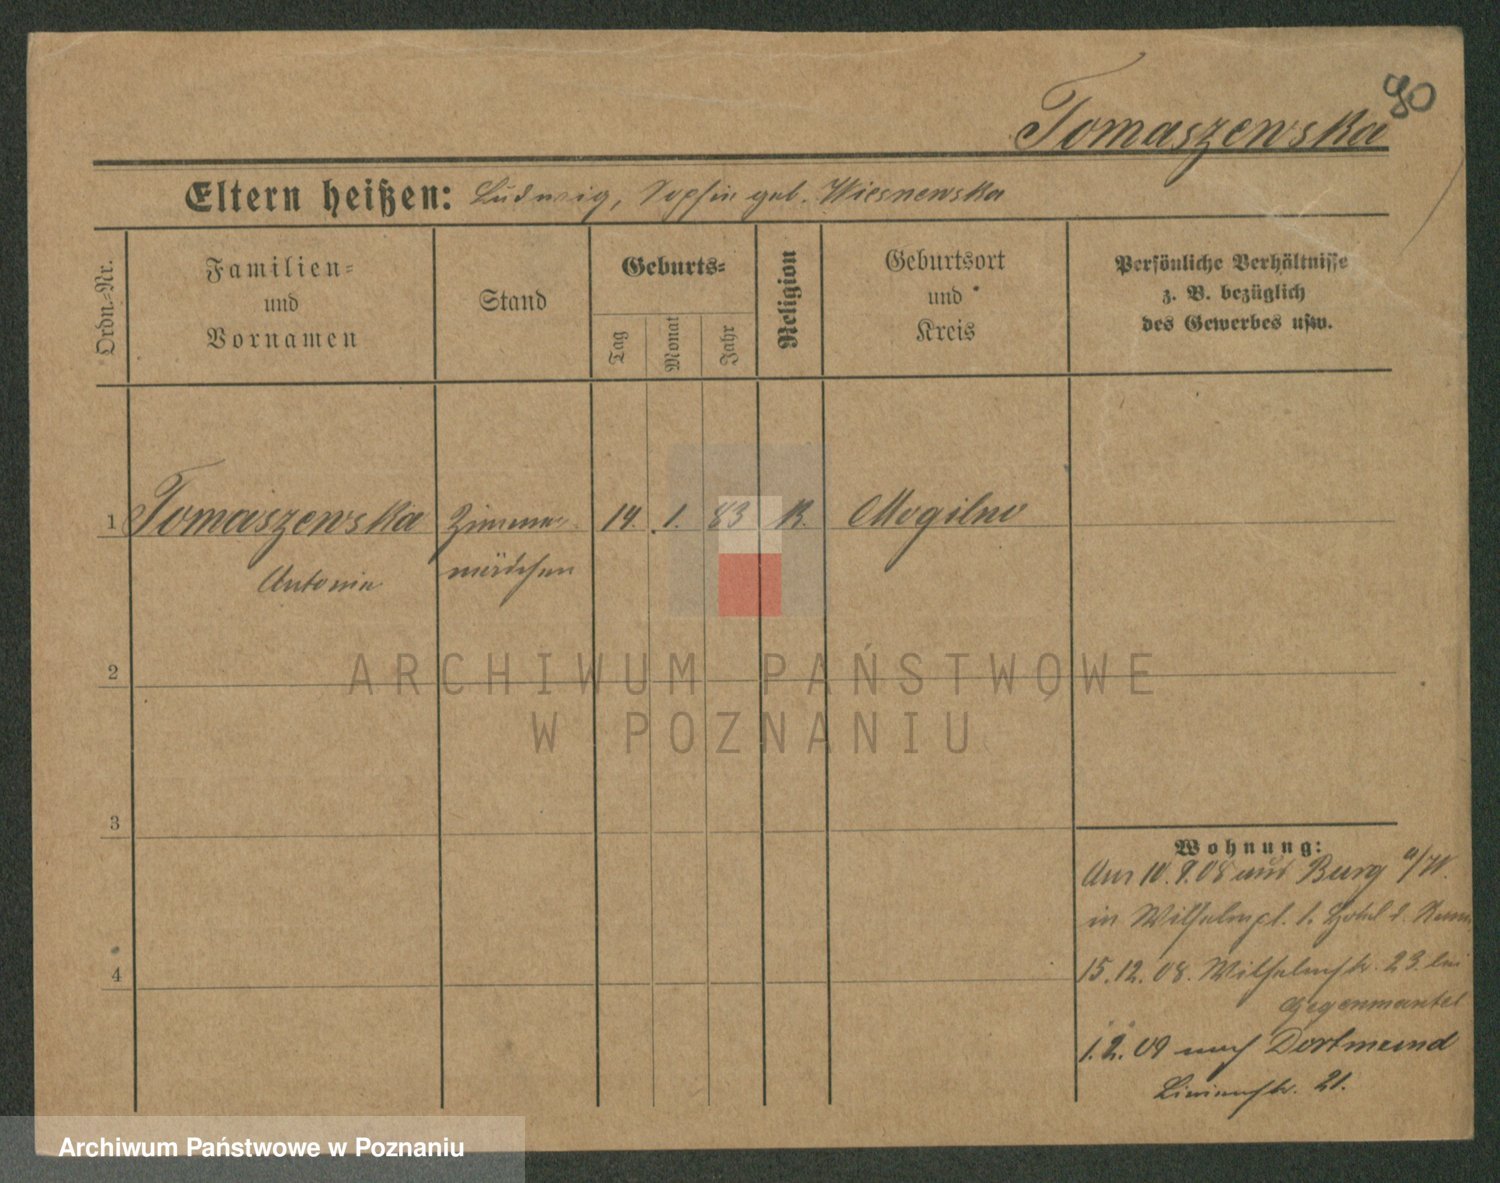 80
Tomaszewska
Eltern heißen: Ludwig, Sophie geb. Wiesnewska
Ordn.=Nr.
Familien=
und
Vornamen
Stand
Geburts=
Tag
Monat
Jahr
Religion
Geburtsort
und
Kreis
Persönliche Verhältnisse
z. B. bezüglich
des Gewerbes usw.
1 Tomaszewska Zimmer- 14. 1. 83 K. Mogilno
Antonie mädchen
2
3
4
Wohnung:
Am 10.9.08 aus Burg a/W.
in Wilhelmpl. 1. Hotel d. Rome
15.12.08. Wilhelmstr. 23. bei
Gegenmantel
1.2.09 nach Dortmund
Linienstr. 21.
ARCHIWUM PAŃSTWOWE
W POZNANIU
Archiwum Państwowe w Poznaniu